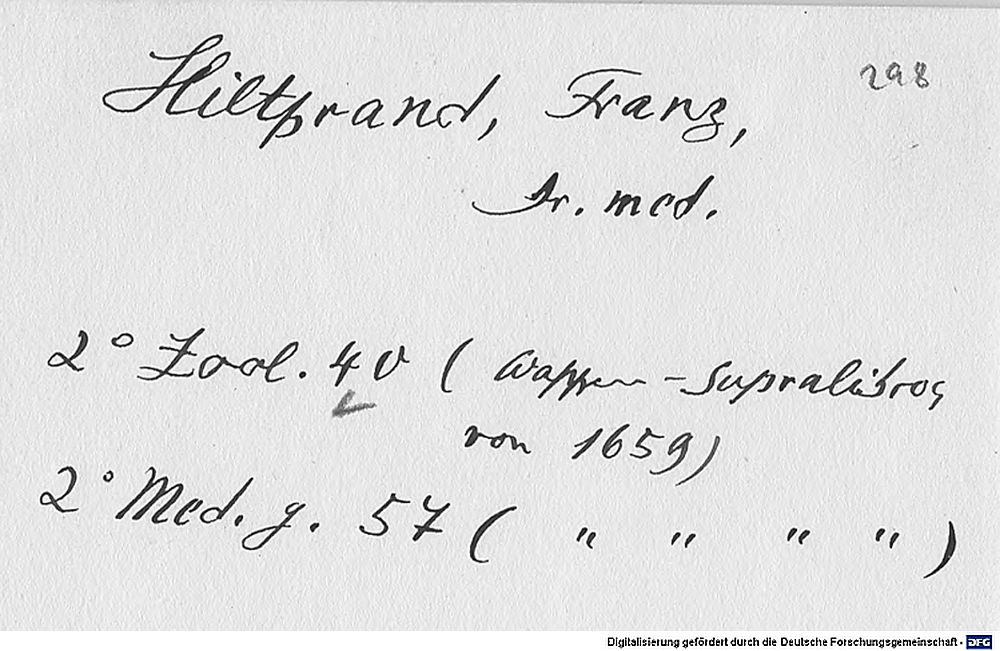 298
Hiltprand, Franz,
Dr. med.
2° Zool. 40 ( Wappen-Supralibros
von 1659)
2° Med. g. 57 ( " " " " )
Digitalisierung gefördert durch die Deutsche Forschungsgemeinschaft - DFG